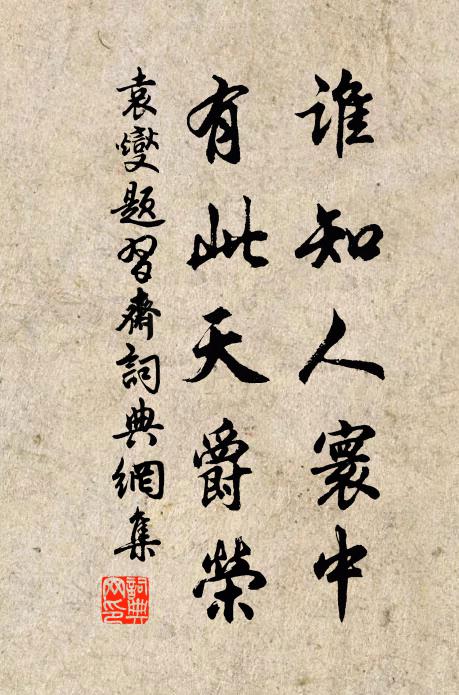 誰知人寰中
有此天爵榮
袁燮題習齋詞典網集
詞典網印